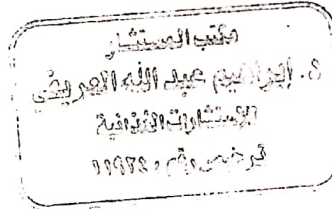 مكتب المستشار
د. إبراهيم عبد الله العريضي
للإستشارات القانونية
ترخيص رقم